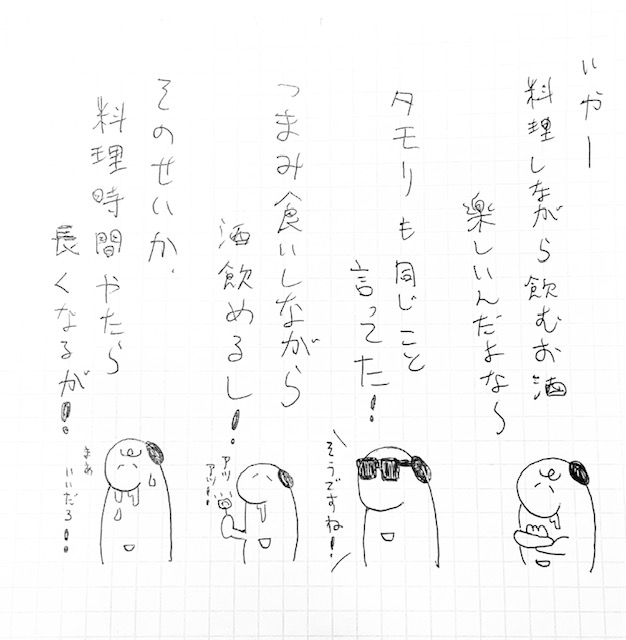 いやー
料理しながら飲むお酒
楽しいんだよなら
タモリも同じこと
言ってた!
つまみ食いしながら
酒飲めるし!
そのせいか、
料理時間やたら
長くなるが!!
\そうですね!/
アツ
アツ!
まあ
いいだろ!!